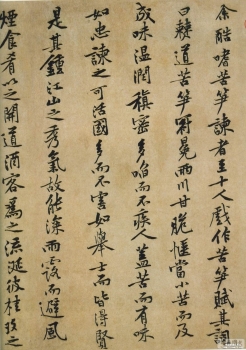 余酷嗜苦笋諫者至十人戲作苦笋賦其詞
曰僰道苦笋冠冕兩川甘脆愜當小苦而及
成味温潤稹密多啗而不疾人蓋苦而有味
如忠諫之可活國多而不害如舉士而皆得賢
是其鍾江山之秀氣故能深雨露而避風
煙食肴以之開道酒客為之流涎彼桂玫之